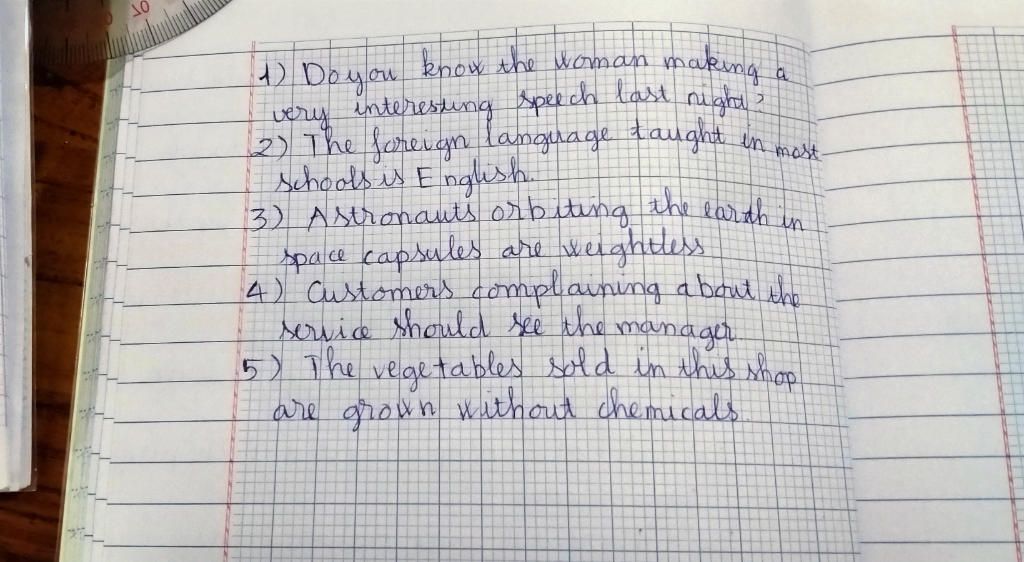 1) Do you know the woman making a
very interesting speech last night?
2) The foreign language taught in most
schools is English.
3) Astronauts orbiting the earth in
space capsules are weightless
4) Customers complaining about the
service should see the manager.
5) The vegetables sold in this shop
are grown without chemicals.